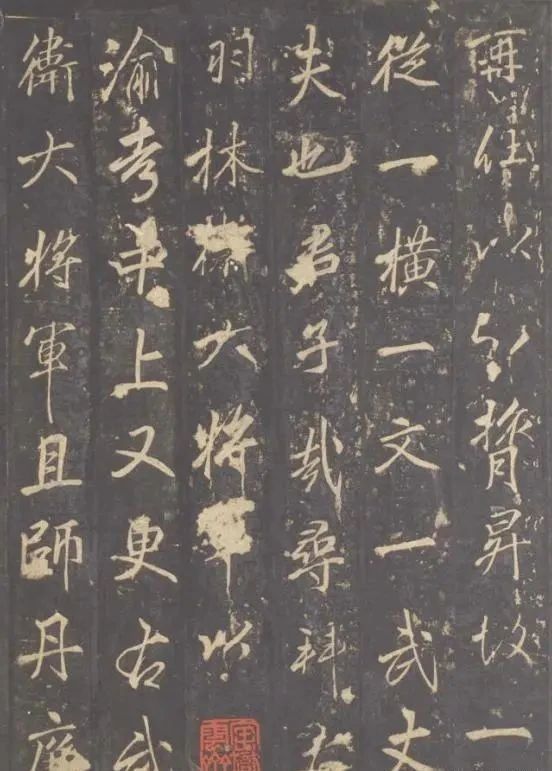 再任以引昇故一
從一橫一文一武丈
夫也君子哉尋拜右
羽林衛大將軍以
渝考上又更右武
衛大將軍且師丹廉